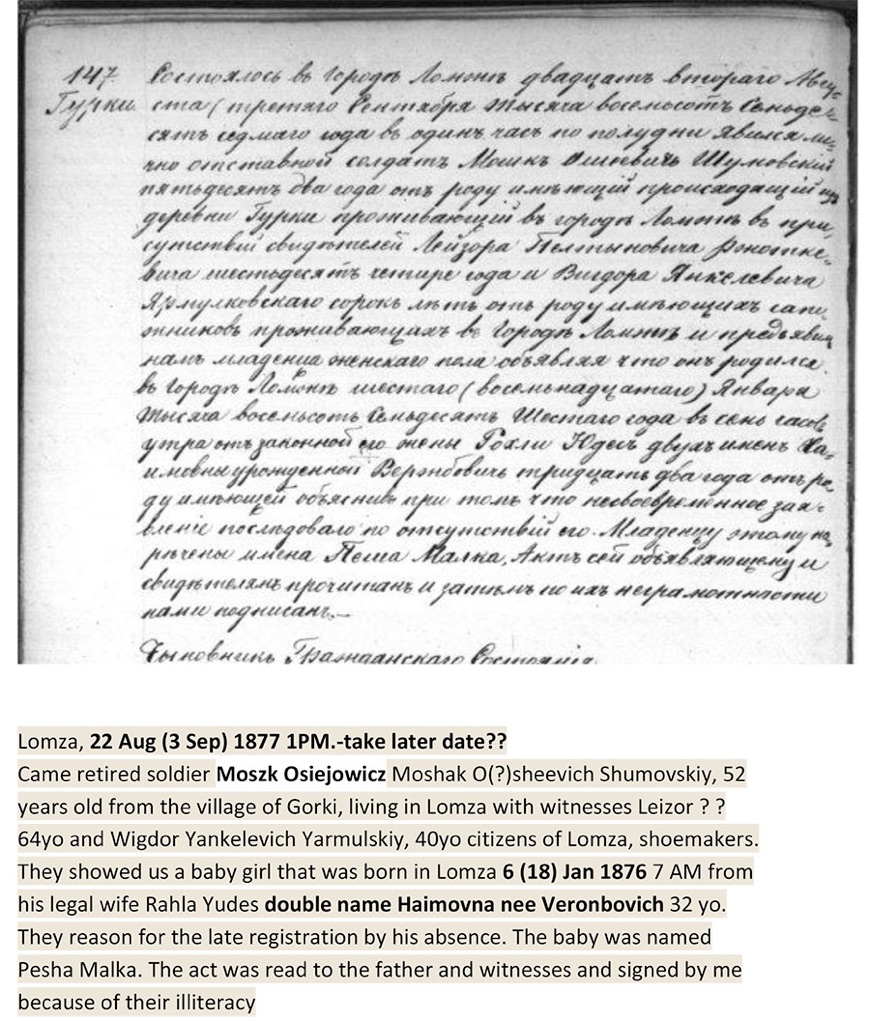 147. Состоялось въ городѣ Ломжѣ двадцать втораго Авгу-
Гурки ста (третяго Сентября тысяча восемьсотъ семьде-
сятъ седмаго года въ одинъ часъ по полудни явился ли-
чно отставной солдатъ Мошкъ Ошіевичъ Шумовскій
пятьдесятъ два года отъ роду имѣющій происходящій изъ
деревни Гурки проживающій въ городѣ Ломжѣ въ при-
сутствій свидѣтелей Лейзора
вича шестьдесятъ четире года и Вигдора Янкелевича
Ярмулковскаго сорокъ лѣтъ отъ роду имѣющихъ сапо-
жниковъ проживающихъ въ городѣ Ломжѣ и предъявилъ
намъ младенца женскаго пола объявляя что онъ родился
въ городѣ Ломжѣ шестаго (восемьнадцатаго) Января
тысяча восемьсотъ семьдесятъ шестаго года въ семь часовъ
утра отъ законной его жены Рохли Юдесъ двухъ именъ Ха-
имовны урожденной тридцать два года отъ ро-
ду имѣющей объяснивъ при томъ что несвоевременное зая-
вленіе послѣдовало по отсутствій его. Младенцу этому на-
рѣчены имена Пеша Малка, Актъ сей объявляющему и
свидѣтелямъ прочитанъ и затѣмъ по ихъ неграмотности
нами подписанъ.—
Чыновникъ Гражданскаго Состоянія
Lomza, 22 Aug (3 Sep) 1877 1PM.-take later date??
Came retired soldier Moszk Osiejowicz Moshak O(?)sheevich Shumovskiy, 52
years old from the village of Gorki, living in Lomza with witnesses Leizor ? ?
64yo and Wigdor Yankelevich Yarmulskiy, 40yo citizens of Lomza, shoemakers.
They showed us a baby girl that was born in Lomza 6 (18) Jan 1876 7 AM from
his legal wife Rahla Yudes double name Haimovna nee Veronbovich 32 yo.
They reason for the late registration by his absence. The baby was named
Pesha Malka. The act was read to the father and witnesses and signed by me
because of their illiteracy